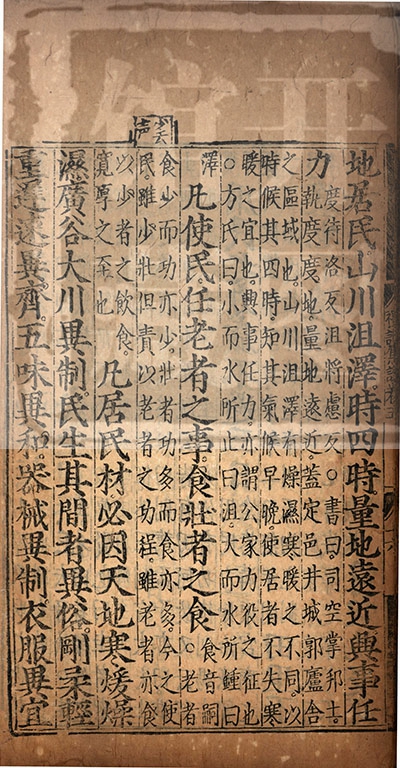 少去声
地居民山川沮澤時四時量地遠近興事任
力
度待洛反沮將慮反○書曰司空掌邦土
執度度地量地遠近蓋定邑井城郭廬舍
之區域也山川沮澤有燥濕寒暖之不同以
時候其四時知其氣候早晚使居者不失寒
暖之宜也興事任力亦謂公家力役之征也
○方氏曰小而水所止曰沮大而水所鍾曰
澤
凡使民任老者之事食壯者之食
食音嗣
○老者
食少而功亦少壯者功多而食亦多今之使
民雖少壯但責以老者之功程雖老者亦食
以少者之飲食
寬厚之至也
凡居民材必因天地寒煖燥
濕廣谷大川異制民生其間者異俗剛柔輕
重遲速異齊五味異和器械異制衣服異宜